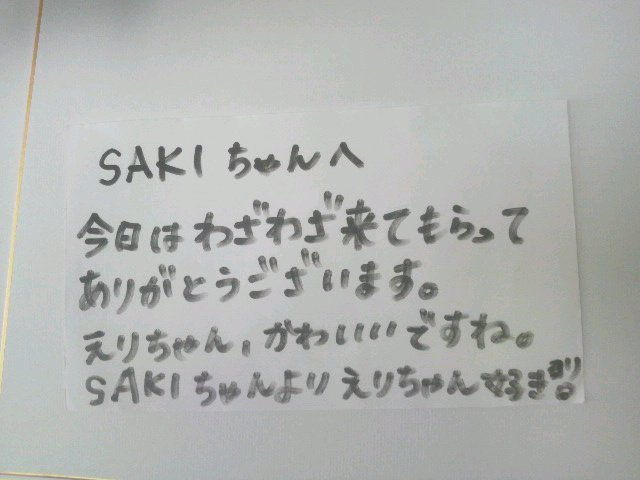 SAKIちゃんへ
今日はわざわざ来てもらって
ありがとうございます。
えりちゃん、かわいいですね。
SAKIちゃんよりえりちゃん好き